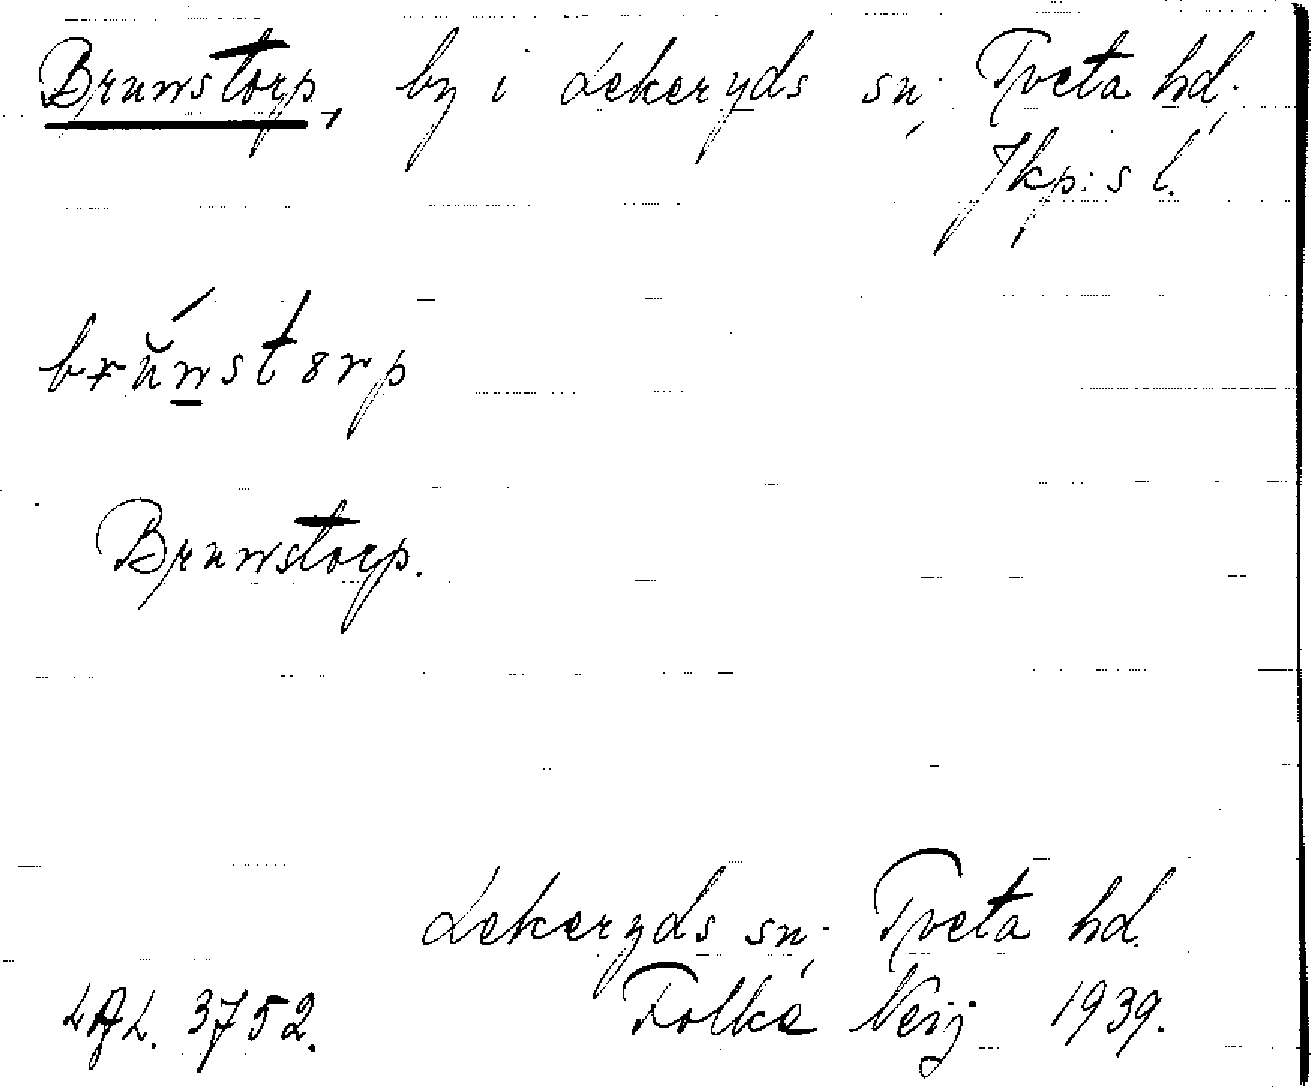 Brunstorp, by i Lekeryds sn, Tveta hd,
Jkp:s l.
Brunstorp.
Lekeryds sn, Tveta hd.
LAL. 3752. Folke Neij 1939.